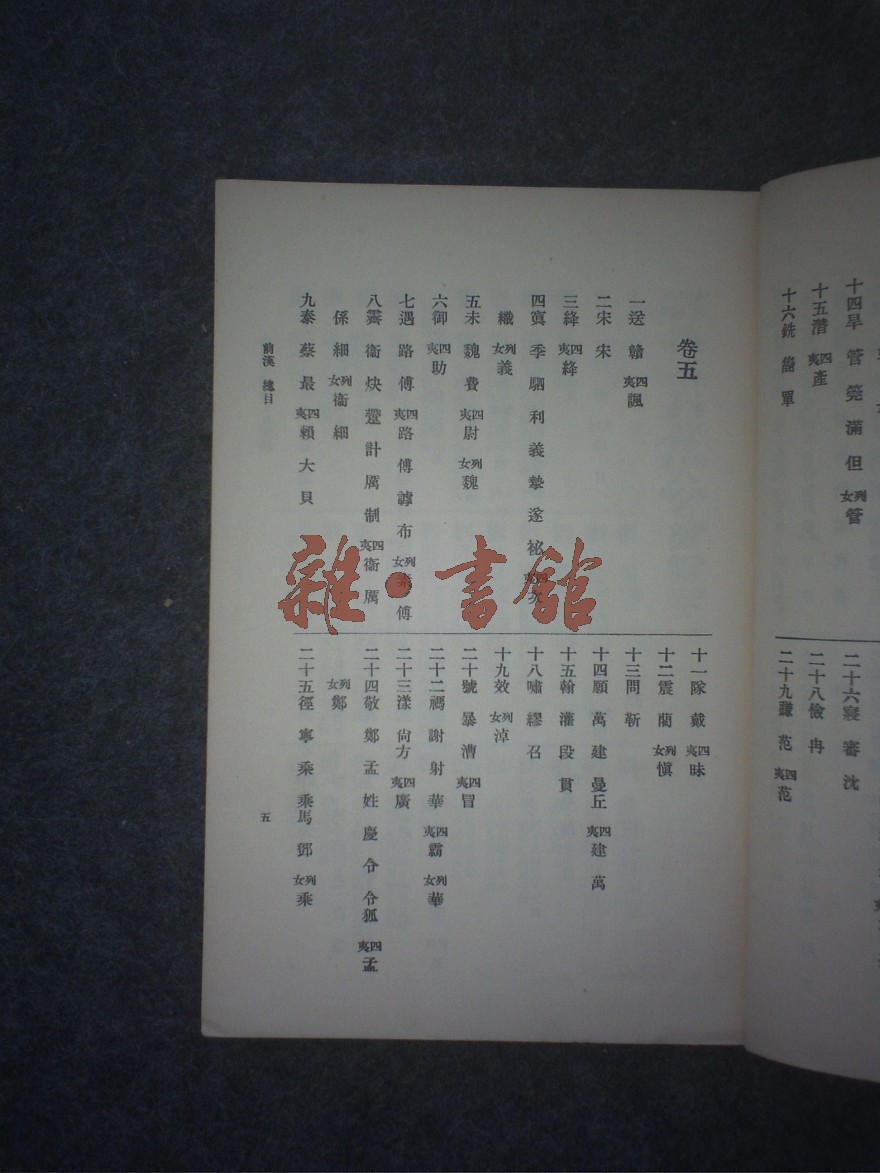 十四旱 管 筦 滿 但 列女 管
十五潸 四夷 產
十六銑 單
二十六寑 審 沈
二十八儉 冉
二十九豏 范 四夷 范
卷五
一送 贛 四夷 諷
二宋 宋
三絳 四夷 絳
四寘 季 駟 利 義 摯 遂 祕
織 列女 義
五未 魏 費 四夷 尉 列女 魏
六御 四夷 助
七遇 路 傅 四夷 路 傅 譚 布 列女 傅
八霽 衞 炔 計 厲 制 四夷 衞 厲
係 細 列女 衞 細
九泰 蔡 最 四夷 賴 大 貝
十一隊 戴 四夷 昧
十二震 藺 列女 愼
十三問 靳
十四願 萬 建 曼丘 四夷 建 萬
十五翰 灌 段 貫
十八嘯 繆 召
十九效 列女 淖
二十號 暴 漕 四夷 冒
二十二禡 謝 射 華 四夷 霸 列女 華
二十三漾 尙方 四夷 廣
二十四敬 鄭 孟 姓 慶 令 令狐 四夷 孟
列女 鄭
二十五徑 寗 乘 乘馬 鄧 列女 乘
前漢 總目
五
雜·書館